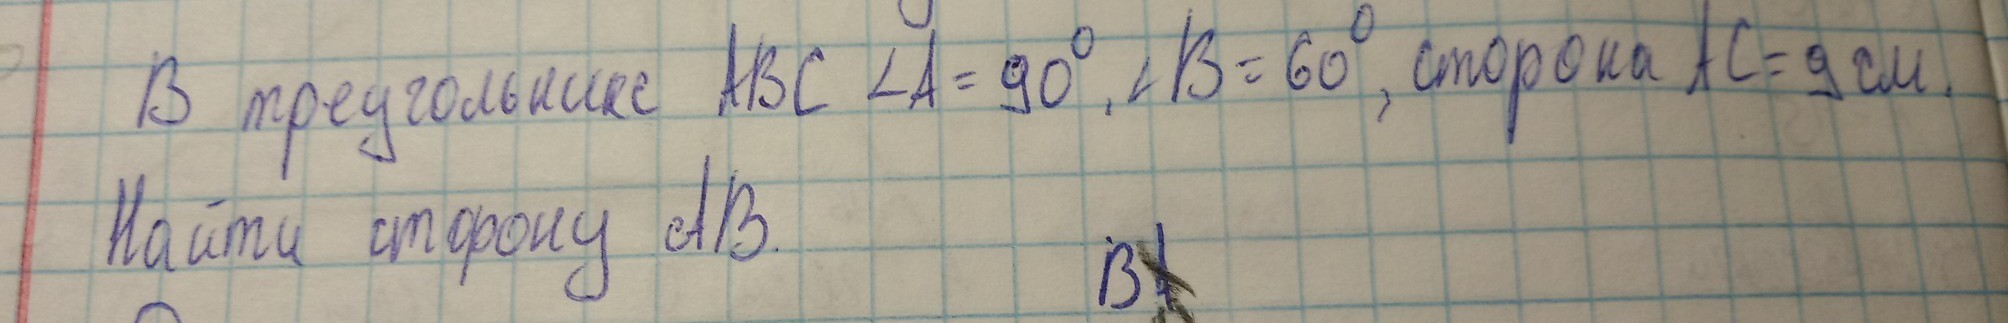 В треугольнике ABC ∠A = 90⁰, ∠B = 60⁰, сторона AC = 9 см.
Найти сторону AB.
B